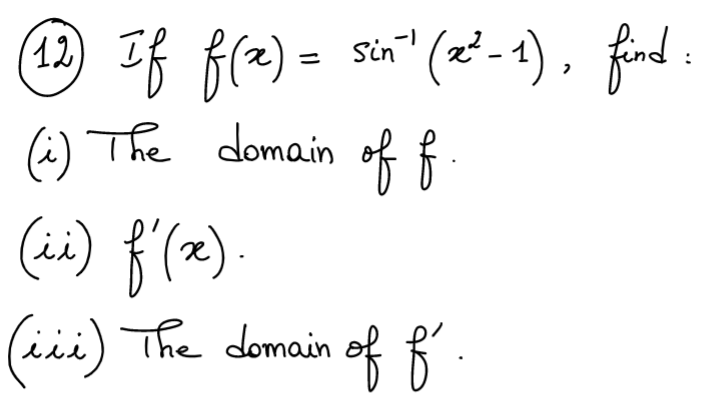 (12) If f(x) = sin⁻¹(x² - 1), find :
(i) The domain of f.
(ii) f'(x).
(iii) The domain of f'.